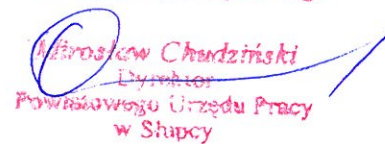 Mirosław Chudziński
Dyrektor
Powiatowego Urzędu Pracy
w Słupcy